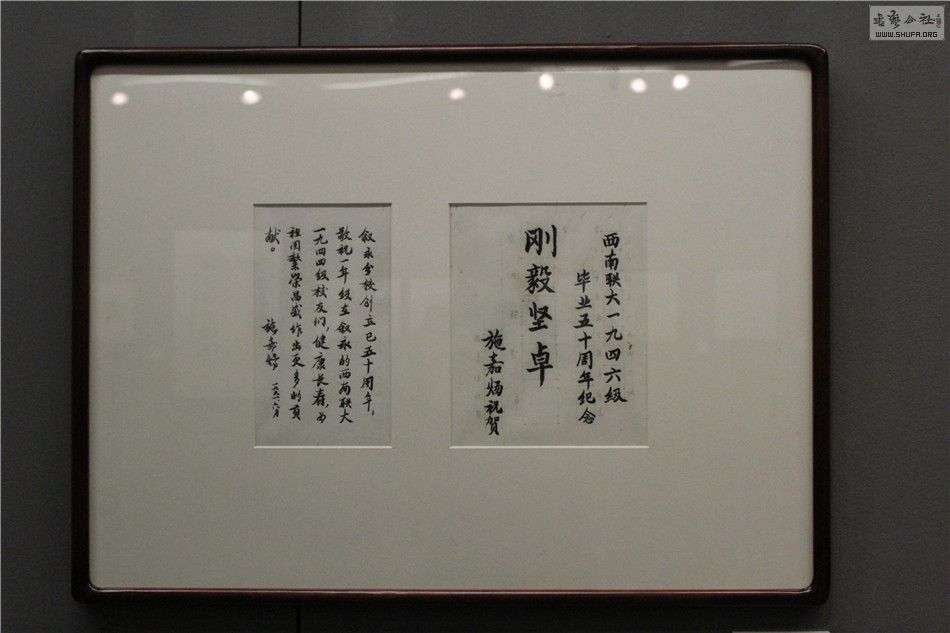 西南联大一九四六级
毕业五十周年纪念
刚毅坚卓
施嘉炀祝贺
叙永分校创立已五十周年，
敬祝一年级在叙永的西南联大
一九四四级校友们，健康长寿，为
祖国繁荣昌盛作出更多的贡
献。
施嘉炀 一九九一六月
WWW.SHUFA.ORG